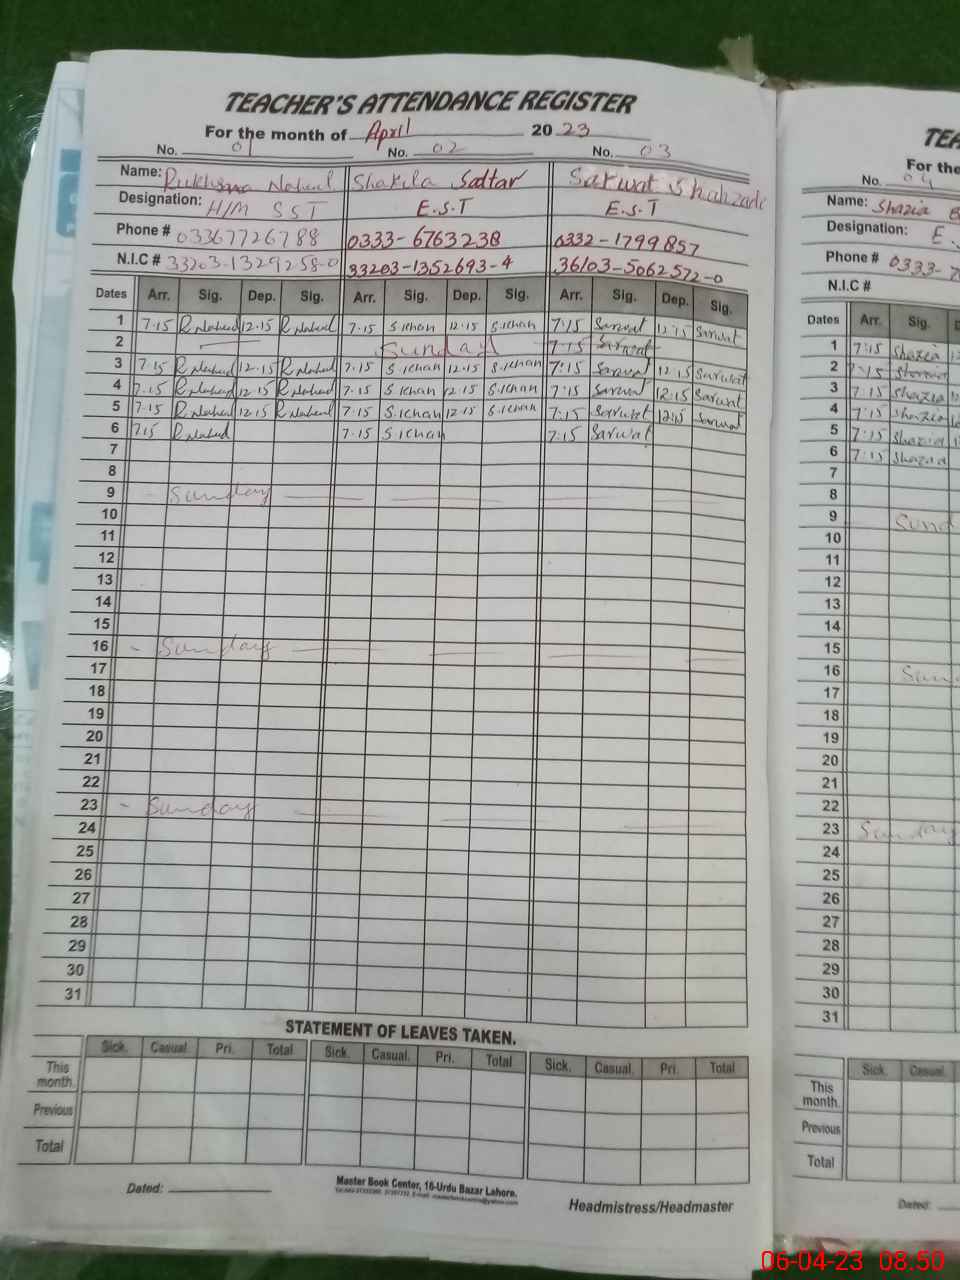 TEACHER'S ATTENDANCE REGISTER
For the month of April 2023
No. 01 No. 02 No. 03
Name: Rukhsana Naheed Shakila Sattar Sarwat Shahzadi
Designation: H/M SST E.S.T E.S.T
Phone # 03367726788 0333-6763238 0332-1799857
N.I.C # 33203-1329258-0 33203-1352693-4 36103-5062572-0
Dates Arr. Sig. Dep. Sig. Arr. Sig. Dep. Sig. Arr. Sig. Dep. Sig.
1 7.15 R Naheed 12.15 R Naheed 7.15 S.Khan 12.15 S.Khan 7:15 Sarwat 12:15 Sarwat
2 Sunday 7:15 Sarwat
3 7.15 R Naheed 12.15 R Naheed 7.15 S.Khan 12.15 S.Khan 7:15 Sarwat 12:15 Sarwat
4 7.15 R Naheed 12.15 R Naheed 7.15 S.Khan 12.15 S.Khan 7:15 Sarwat 12:15 Sarwat
5 7.15 R Naheed 12.15 R Naheed 7.15 S.Khan 12.15 S.Khan 7:15 Sarwat 12:15 Sarwat
6 7.15 R Naheed 7.15 S.Khan 7:15 Sarwat
7
8
9 Sunday
10
11
12
13
14
15
16 Sunday
17
18
19
20
21
22
23 Sunday
24
25
26
27
28
29
30
31
STATEMENT OF LEAVES TAKEN.
Sick. Casual. Pri. Total Sick. Casual. Pri. Total Sick. Casual. Pri. Total
This month.
Previous
Total
Dated:
Master Book Center, 16-Urdu Bazar Lahore.
Headmistress/Headmaster
TEA
For the
No. 04
Name: Shazia
Designation: E.
Phone # 0333-7
N.I.C #
Dates Arr. Sig.
1 7:15 Shazia
2 7:15
3 7:15 Shazia
4 7:15 Shazia
5 7:15 Shazia
6 7:15 Shazia
7
8
9 Sund
10
11
12
13
14
15
16 Sun
17
18
19
20
21
22
23 Sunday
24
25
26
27
28
29
30
31
Sick. Casual.
This month.
Previous
Total
Dated:
06-04-23 08:50